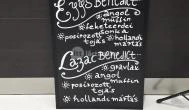 Eggs Benedict
• angol muffin
• feketeerdei sonka
• posírozott tojás
• hollandi mártás
Lazac Benedict
• gravlax
• angol muffin
• posírozott tojás
• hollandi mártás